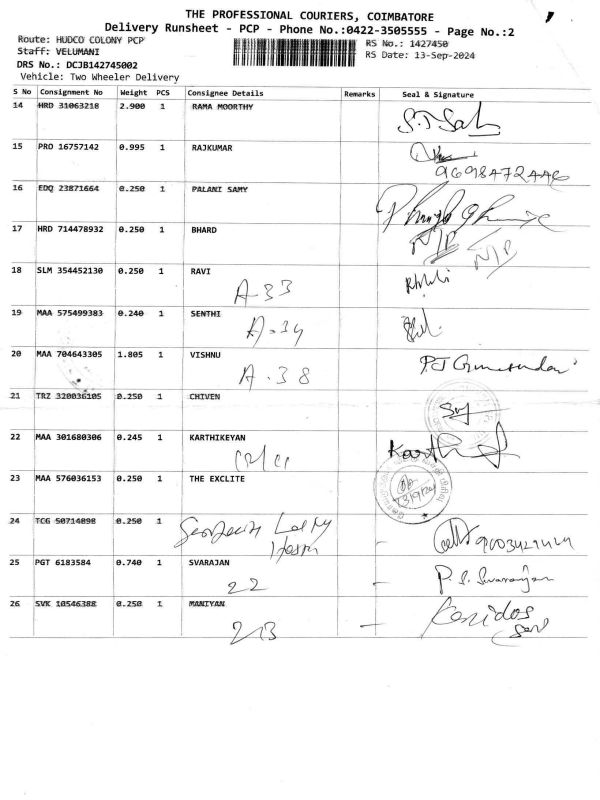 THE PROFESSIONAL COURIERS, COIMBATORE
Delivery Runsheet - PCP - Phone No.:0422-3505555 - Page No.:2
Route: HUDCO COLONY PCP
RS No.: 1427450
Staff: VELUMANI
RS Date: 13-Sep-2024
DRS No.: DCJB142745002
Vehicle: Two Wheeler Delivery
S No Consignment No Weight PCS Consignee Details Remarks Seal & Signature
14 HRD 31063218 2.900 1 RAMA MOORTHY
15 PRO 16757142 0.995 1 RAJKUMAR
16 EDQ 23871664 0.250 1 PALANI SAMY
17 HRD 714478932 0.250 1 BHARD N/P N/P
18 SLM 354452130 0.250 1 RAVI
A-33
19 MAA 575499383 0.240 1 SENTHI
A-34
20 MAA 704643305 1.805 1 VISHNU
A-38
21 TRZ 320036105 0.250 1 CHIVEN
22 MAA 301680306 0.245 1 KARTHIKEYAN
23 MAA 576036153 0.250 1 THE EXCLITE
13/9/24
24 TCG 50714098 0.250 1
25 PGT 6183584 0.740 1 SVARAJAN
22
26 SVK 10546388 0.250 1 MANIYAN
213